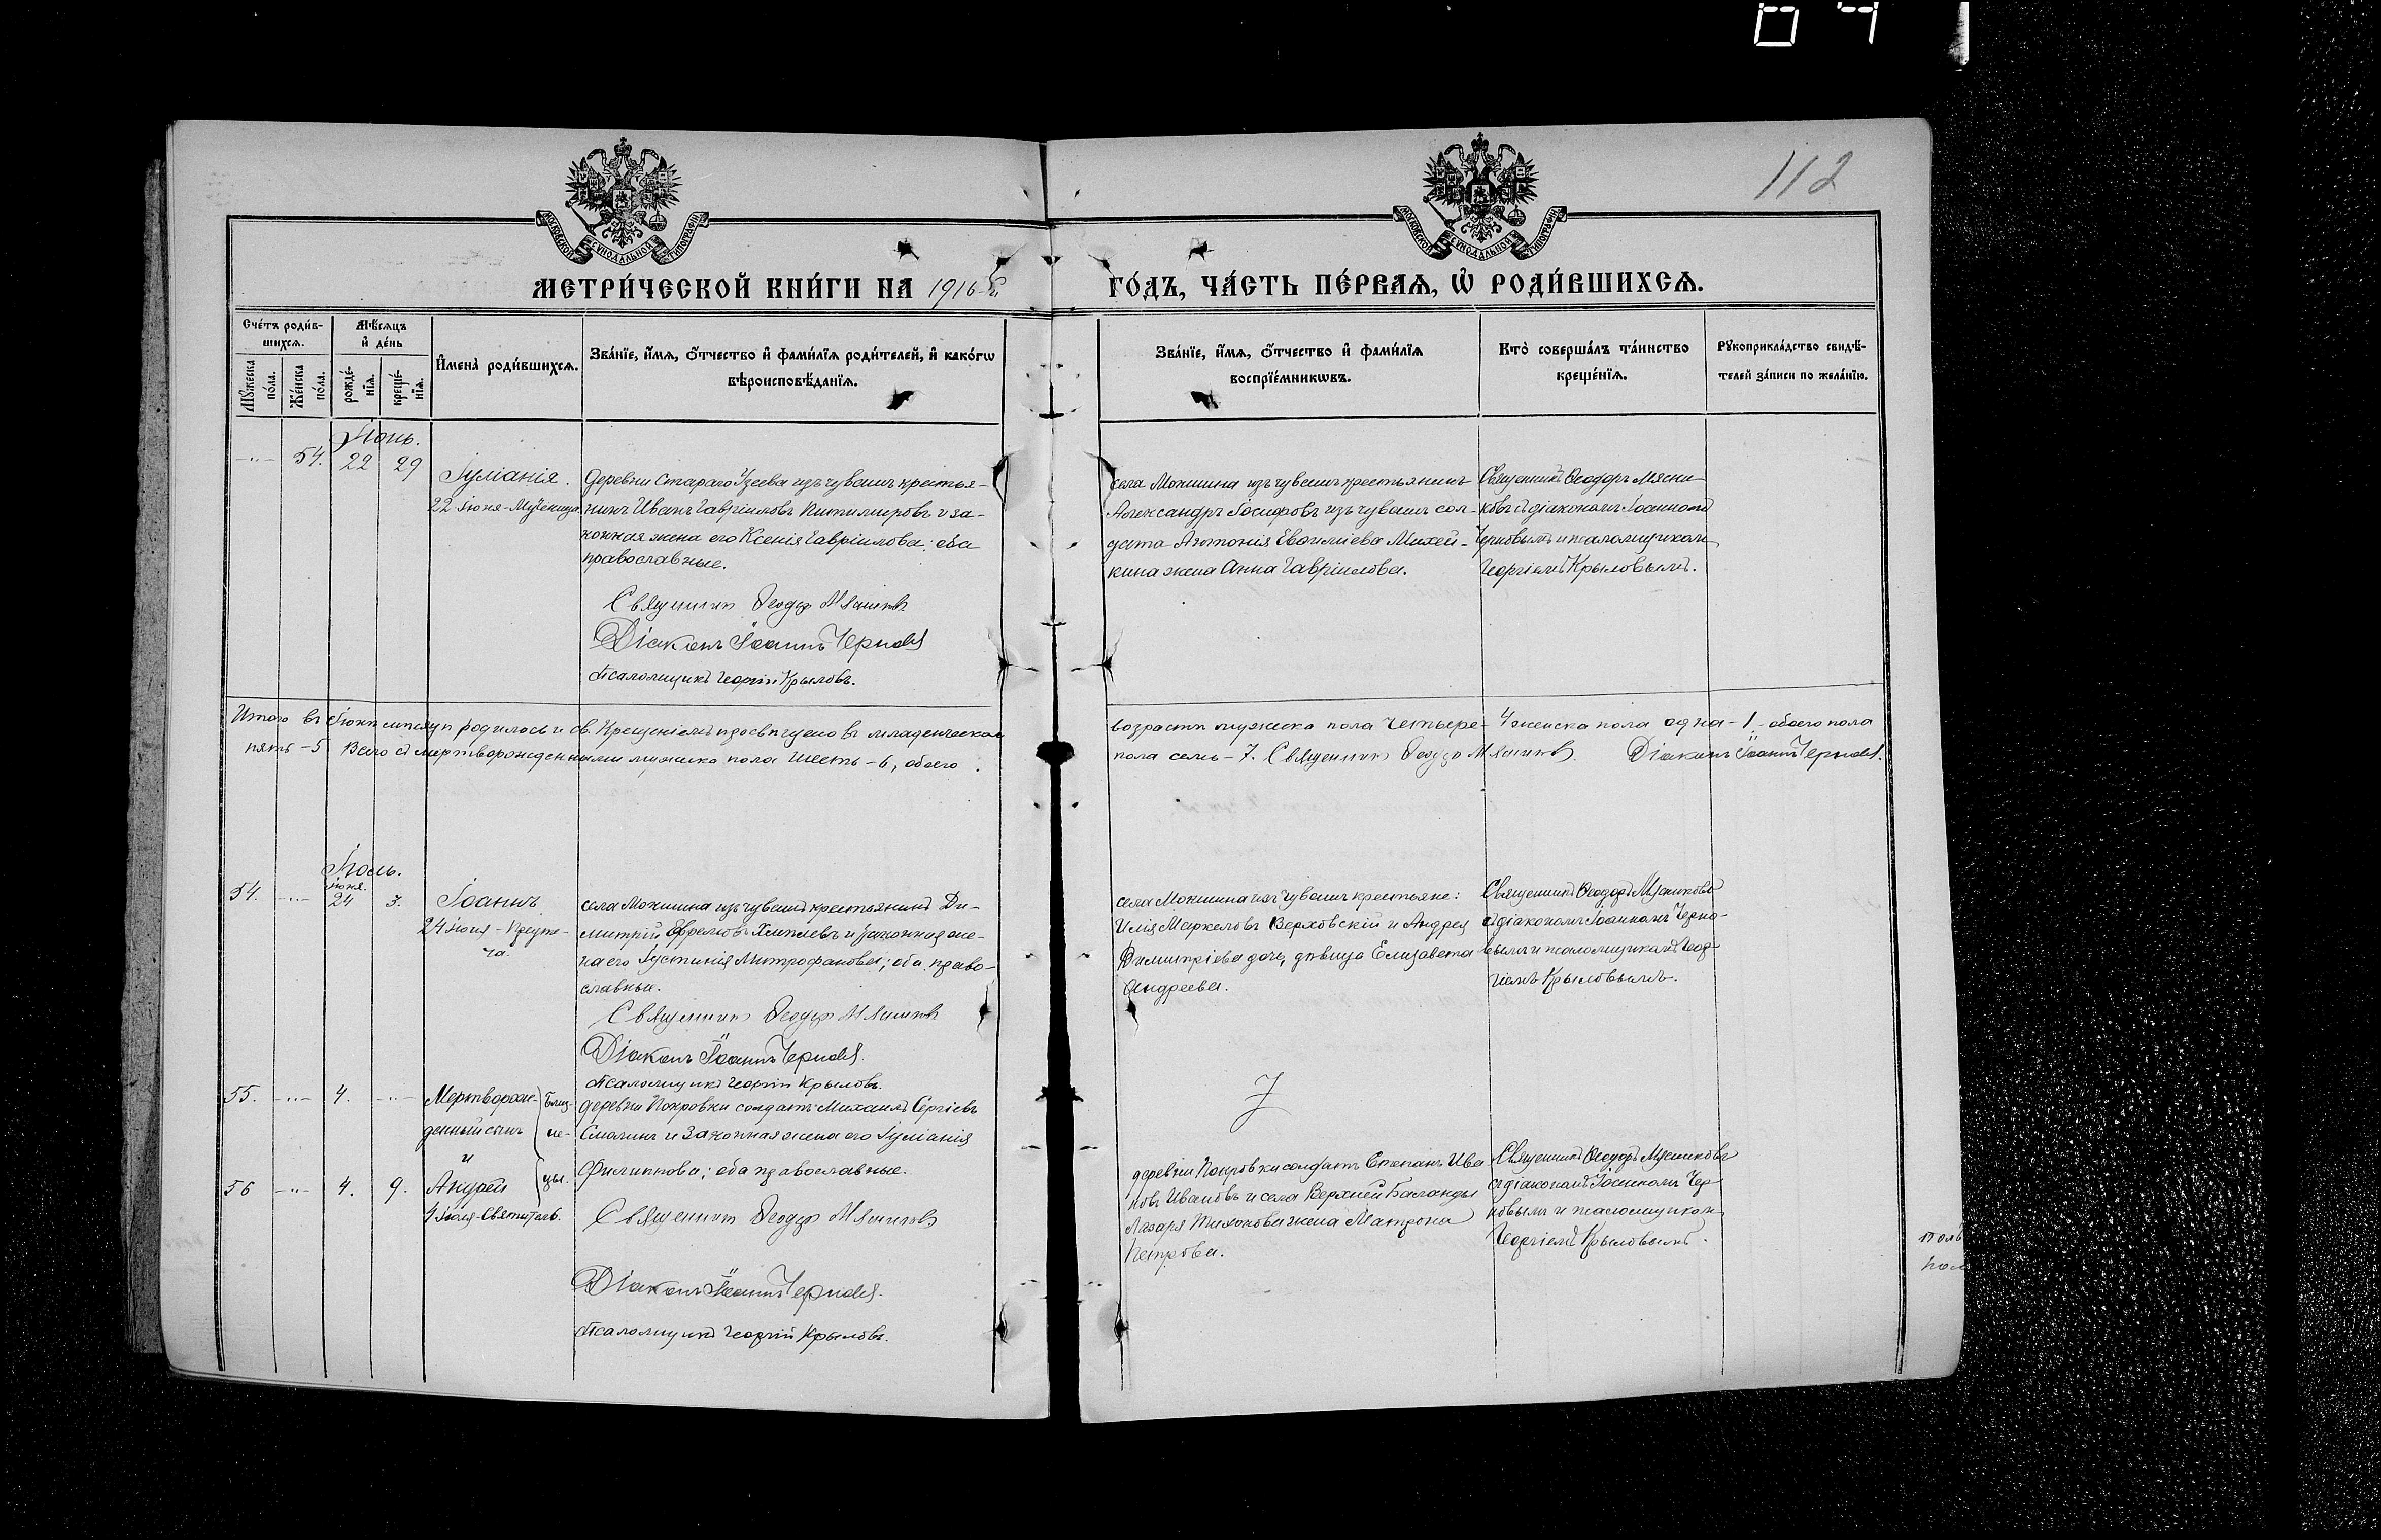 112
МОСКОВСКОЙ СѴНОДАЛЬНОЙ ТИПОГРАФІИ
МОСКОВСКОЙ СѴНОДАЛЬНОЙ ТИПОГРАФІИ
МЕТРИ́ЧЕСКОЙ КНИ́ГИ НА 1916-й
ГО́ДЪ, ЧА́СТЬ ПЕ́РВАѦ, Ѡ҆ РОДИ́ВШИХСѦ.
Сче́тъ роди́в-
шихсѧ.
Мꙋ́жеска по́ла.
Же́нска по́ла.
Мѣ́сѧцъ
и҆ де́нь
рожде́-
нїѧ.
креще́-
нїѧ.
И҆мена̀ роди́вшихсѧ.
Зва́нїе, и҆́мѧ, ѻ҆́тчество и҆ фами́лїѧ роди́телей, и҆ како́гѡ
вѣроисповѣ́данїѧ.
Зва́нїе, и҆́мѧ, ѻ҆́тчество и҆ фами́лїѧ
воспрїе́мникѡвъ.
Кто̀ соверша́лъ та́инство
креще́нїѧ.
Рꙋкоприкла́дство свидѣ́-
телей за́писи по жела́нїю.
Іюнь.
-"- 54. 22 29
Іуліанія.
22 іюня - Мученица
Деревни Стараго Узеева изъ чувашъ крестья-
нинъ Иванъ Гавріиловъ Питимировъ и за-
конная жена его Ксенія Гавріилова; оба
православные.
Священникъ Ѳеодоръ Мясниковъ
Діаконъ Іоаннъ Черновъ
Псаломщикъ Георгій Крыловъ.
села Мокшина изъ чувашъ крестьянинъ
Александръ Іосифовъ изъ чувашъ сол-
дата Антонія Евдокіева Михей-
кина жена Анна Гавріилова.
Священникъ Ѳеодоръ Мясни-
ковъ съ діакономъ Іоанномъ
Черновымъ и псаломщикомъ
Георгіемъ Крыловымъ.
Итого въ Іюнѣ мѣсяцѣ родилось и св. Крещеніемъ просвѣщено въ младенческомъ
возрастѣ мужска пола четыре - 4 женска пола одна - 1 обоего пола
пять - 5 Всего съ мертворожденными мужска пола шесть - 6, обоего
пола семь - 7. Священникъ Ѳеодоръ Мясниковъ. Діаконъ Іоаннъ Черновъ.
Іюль.
54. -"- іюня. 24 3.
Іоаннъ
24 іюня - Предте-
ча.
села Мокшина изъ чувашъ крестьянинъ Ди-
митрій Ефремовъ и законная же-
на его Іустинія Митрофанова; оба право-
славные.
Священникъ Ѳеодоръ Мясниковъ
Діаконъ Іоаннъ Черновъ.
Псаломщикъ Георгій Крыловъ.
села Мокшина изъ чувашъ крестьяне:
Илія Маркеловъ Верховскій и Андрея
Димитріева дочь, дѣвица Елизавета
Андреева.
Священникъ Ѳеодоръ Мясниковъ
съ діакономъ Іоанномъ Черно-
вымъ и псаломщикомъ Геор-
гіемъ Крыловымъ.
55. -"- 4. -"-
Мертворож-
денный сынъ
и
Близ-
не-
цы.
56 -"- 4. 9.
Андрей
4 Іюля - Святитель.
деревни Покровки солдатъ Михаилъ Сергіевъ
Смолинъ и законная жена его Іуліанія
Филиппова; оба православные.
Священникъ Ѳеодоръ Мясниковъ
Діаконъ Іоаннъ Черновъ.
Псаломщикъ Георгій Крыловъ.
деревни Покровки солдатъ Степанъ Ива
новъ Ивановъ и села Верхней Баланды
Лазаря Тихонова жена Матрона
Петрова.
Священникъ Ѳеодоръ Мясниковъ
съ діакономъ Іоанномъ Чер-
новымъ и псаломщикомъ
Георгіемъ Крыловымъ.